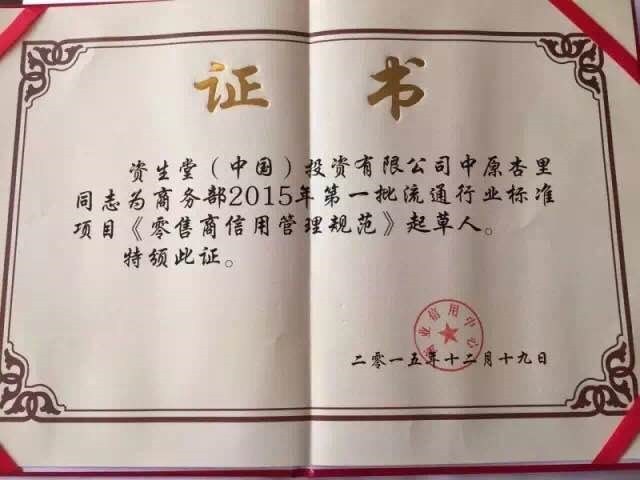 证 书
资生堂（中国）投资有限公司中原杏里
同志为商务部2015年第一批流通行业标准
项目《零售商信用管理规范》起草人。
特颁此证。
业信用中心
二零一五年十二月十九日